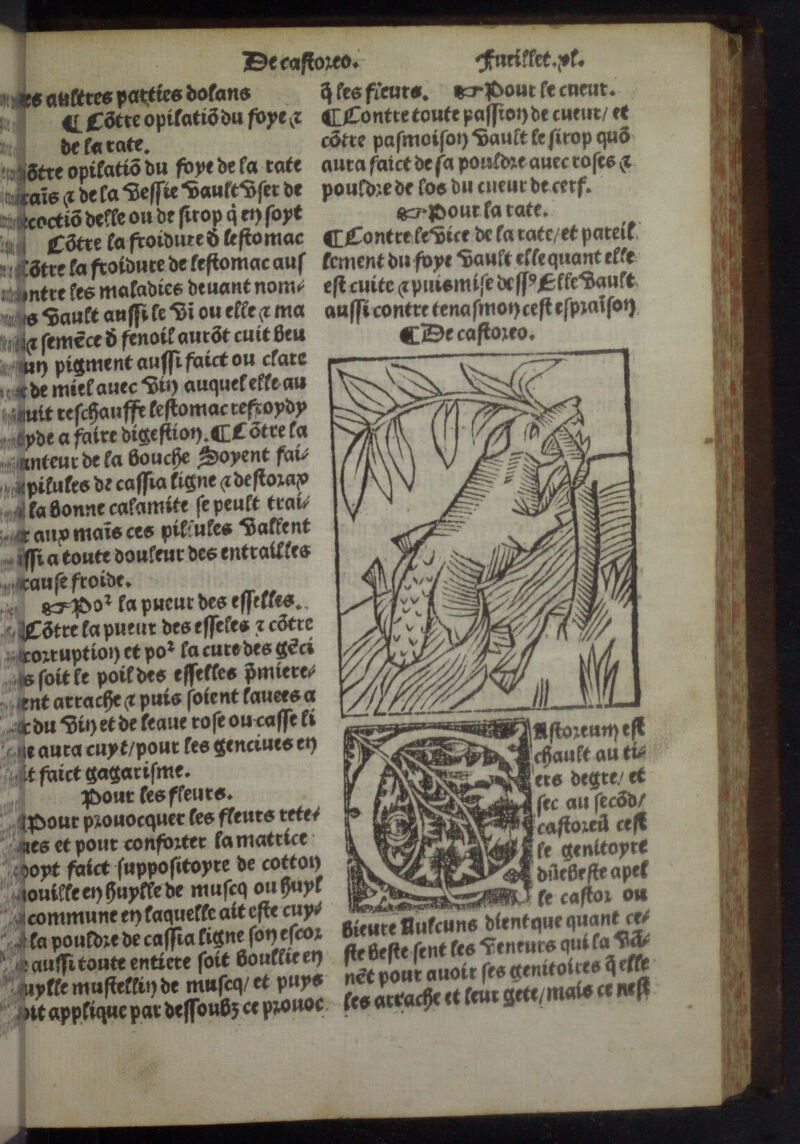 De castoreo.
Fueillet.xl.
es aultres parties dolans
¶ Cõtre opilatiõ du foye ⁊
de la rate.
õtre opilatiõ du foye de la rate
raĩs ⁊ de la Vessie Vault Vser de
coctiõ delle ou de sirop q̃ en soyt
Cõtre la froidure d̃ lestomac
Cõtre la froidure de lestomac aus
ontre les maladies deuant nom⸗
s Vault aussi le Vi ou elle ⁊ ma
⁊ semẽce d̃ fenoil aurõt cuit beu
un pigment aussi faict ou clare
de miel auec Vin auquel elle au
uit reschauffe lestomac refroydy
yde a faire digestion. ¶ Cõtre la
anteur de la bouche Soyent fai⸗
pilules de cassia ligne ⁊ destorax
la bonne calamite se peult trai⸗
aux maĩs ces pillules Vallent
ssi a toute douleur des entrailles
cause froide.
☞ Po² la pueur des esselles.
Cõtre la pueur des esseles ⁊ cõtre
corruption et po² la cure des gẽci
s soit le poil des esselles p̃miere⸗
ent arrache ⁊ puis soient lauees a
du Vin et de leaue rose ou casse li
e aura cuyt/pour les genciues en
it faict gagarisme.
Pour les fleurs.
Pour prouocquer les fleurs rete⸗
ues et pour conforter la matrice
oyt faict suppositoyre de cotton
ouille en huylle de muscq ou huyl
commune en laquelle ait este cuy⸗
la pouldre de cassia ligne son escor
aussi toute entiere soit boullie en
uylle mustellin de muscq/ et puys
oit applique par dessoubz ce prouoc
q̃ les fleurs. ☞ Pour le cueur.
¶ Contre toute passion de cueur/ et
cõtre pasmoison Vault le sirop quõ
aura faict de sa pouldre auec roses ⁊
pouldre de los du cueur de cerf.
☞ Pour la rate.
¶ Contre le Vice de la rate/et pareil
lement du foye Vault elle quant elle
est cuite ⁊ puis mise dess⁹ Elle Vault
aussi contre tenasmon cest espraĩson
¶ De castoreo.
CAstoreum est
chault au ti⸗
ers degre/ et
sec au secõd/
castoreũ cest
le genitoyre
dũe beste apel
le castor ou
bieure Aulcuns dient que quant ce⸗
ste beste sent les Veneurs qui la Vã⸗
nẽt pour auoir ses genitoires q̃ elle
les arrache et leur gete/mais ce nest